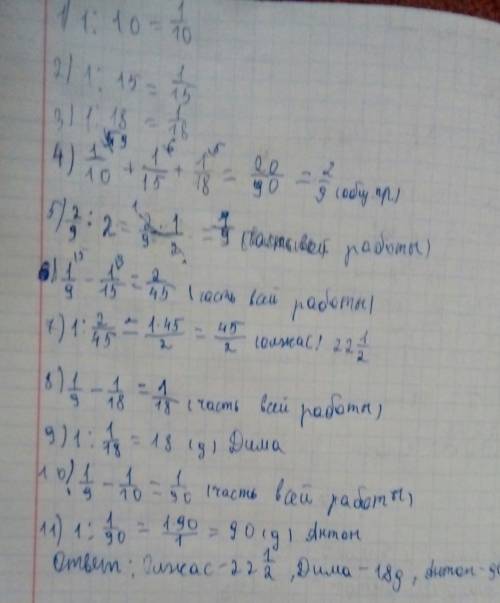 1) 1 : 10 = 1/10
2) 1 : 15 = 1/15
3) 1 : 18 = 1/18
4) 1/10 + 1/15 + 1/18 = 20/90 = 2/9 (общ пр)
5) 2/9 : 2 = 2/9 · 1/2 = 1/9 (часть всей работы)
6) 1/9 - 1/15 = 2/45 (часть всей работы)
7) 1 : 2/45 = 1·45/2 = 45/2 (олжас) 22 1/2
8) 1/9 - 1/18 = 1/18 (часть всей работы)
9) 1 : 1/18 = 18 (д) Дима
10) 1/9 - 1/10 = 1/90 (часть всей работы)
11) 1 : 1/90 = 1·90/1 = 90 (д) Антон
Ответ: Олжас - 22 1/2, Дима - 18д, Антон - 90